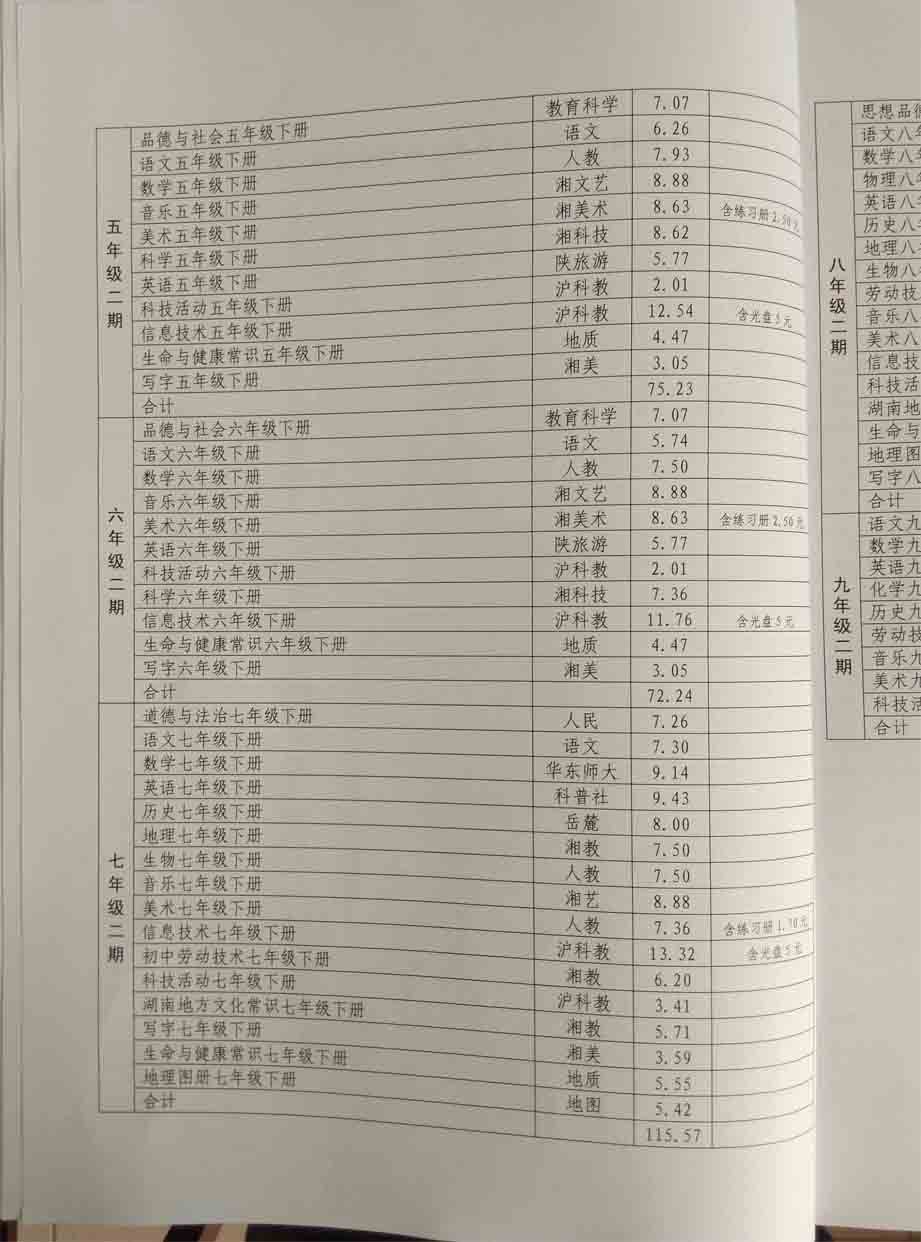 五年级二期
品德与社会五年级下册 教育科学 7.07
语文五年级下册 语文 6.26
数学五年级下册 人教 7.93
音乐五年级下册 湘文艺 8.88
美术五年级下册 湘美术 8.63 含练习册2.50元
科学五年级下册 湘科技 8.62
英语五年级下册 陕旅游 5.77
科技活动五年级下册 沪科教 2.01
信息技术五年级下册 沪科教 12.54 含光盘5元
生命与健康常识五年级下册 地质 4.47
写字五年级下册 湘美 3.05
合计 75.23
六年级二期
品德与社会六年级下册 教育科学 7.07
语文六年级下册 语文 5.74
数学六年级下册 人教 7.50
音乐六年级下册 湘文艺 8.88
美术六年级下册 湘美术 8.63 含练习册2.50元
英语六年级下册 陕旅游 5.77
科技活动六年级下册 沪科教 2.01
科学六年级下册 湘科技 7.36
信息技术六年级下册 沪科教 11.76 含光盘5元
生命与健康常识六年级下册 地质 4.47
写字六年级下册 湘美 3.05
合计 72.24
七年级二期
道德与法治七年级下册 人民 7.26
语文七年级下册 语文 7.30
数学七年级下册 华东师大 9.14
英语七年级下册 科普社 9.43
历史七年级下册 岳麓 8.00
地理七年级下册 湘教 7.50
生物七年级下册 人教 7.50
音乐七年级下册 湘艺 8.88
美术七年级下册 人教 7.36 含练习册1.70元
信息技术七年级下册 沪科教 13.32 含光盘5元
初中劳动技术七年级下册 湘教 6.20
科技活动七年级下册 沪科教 3.41
湖南地方文化常识七年级下册 湘教 5.71
写字七年级下册 湘美 3.59
生命与健康常识七年级下册 地质 5.55
地理图册七年级下册 地图 5.42
合计 115.57
八年级二期
思想品
语文八
数学八
物理八
英语八
历史八
地理八
生物八
劳动技
音乐八
美术八
信息技
科技活
湖南地
生命与
地理图
写字八
合计
九年级二期
语文九
数学九
英语九
化学九
历史九
劳动技
音乐九
美术九
科技活
合计